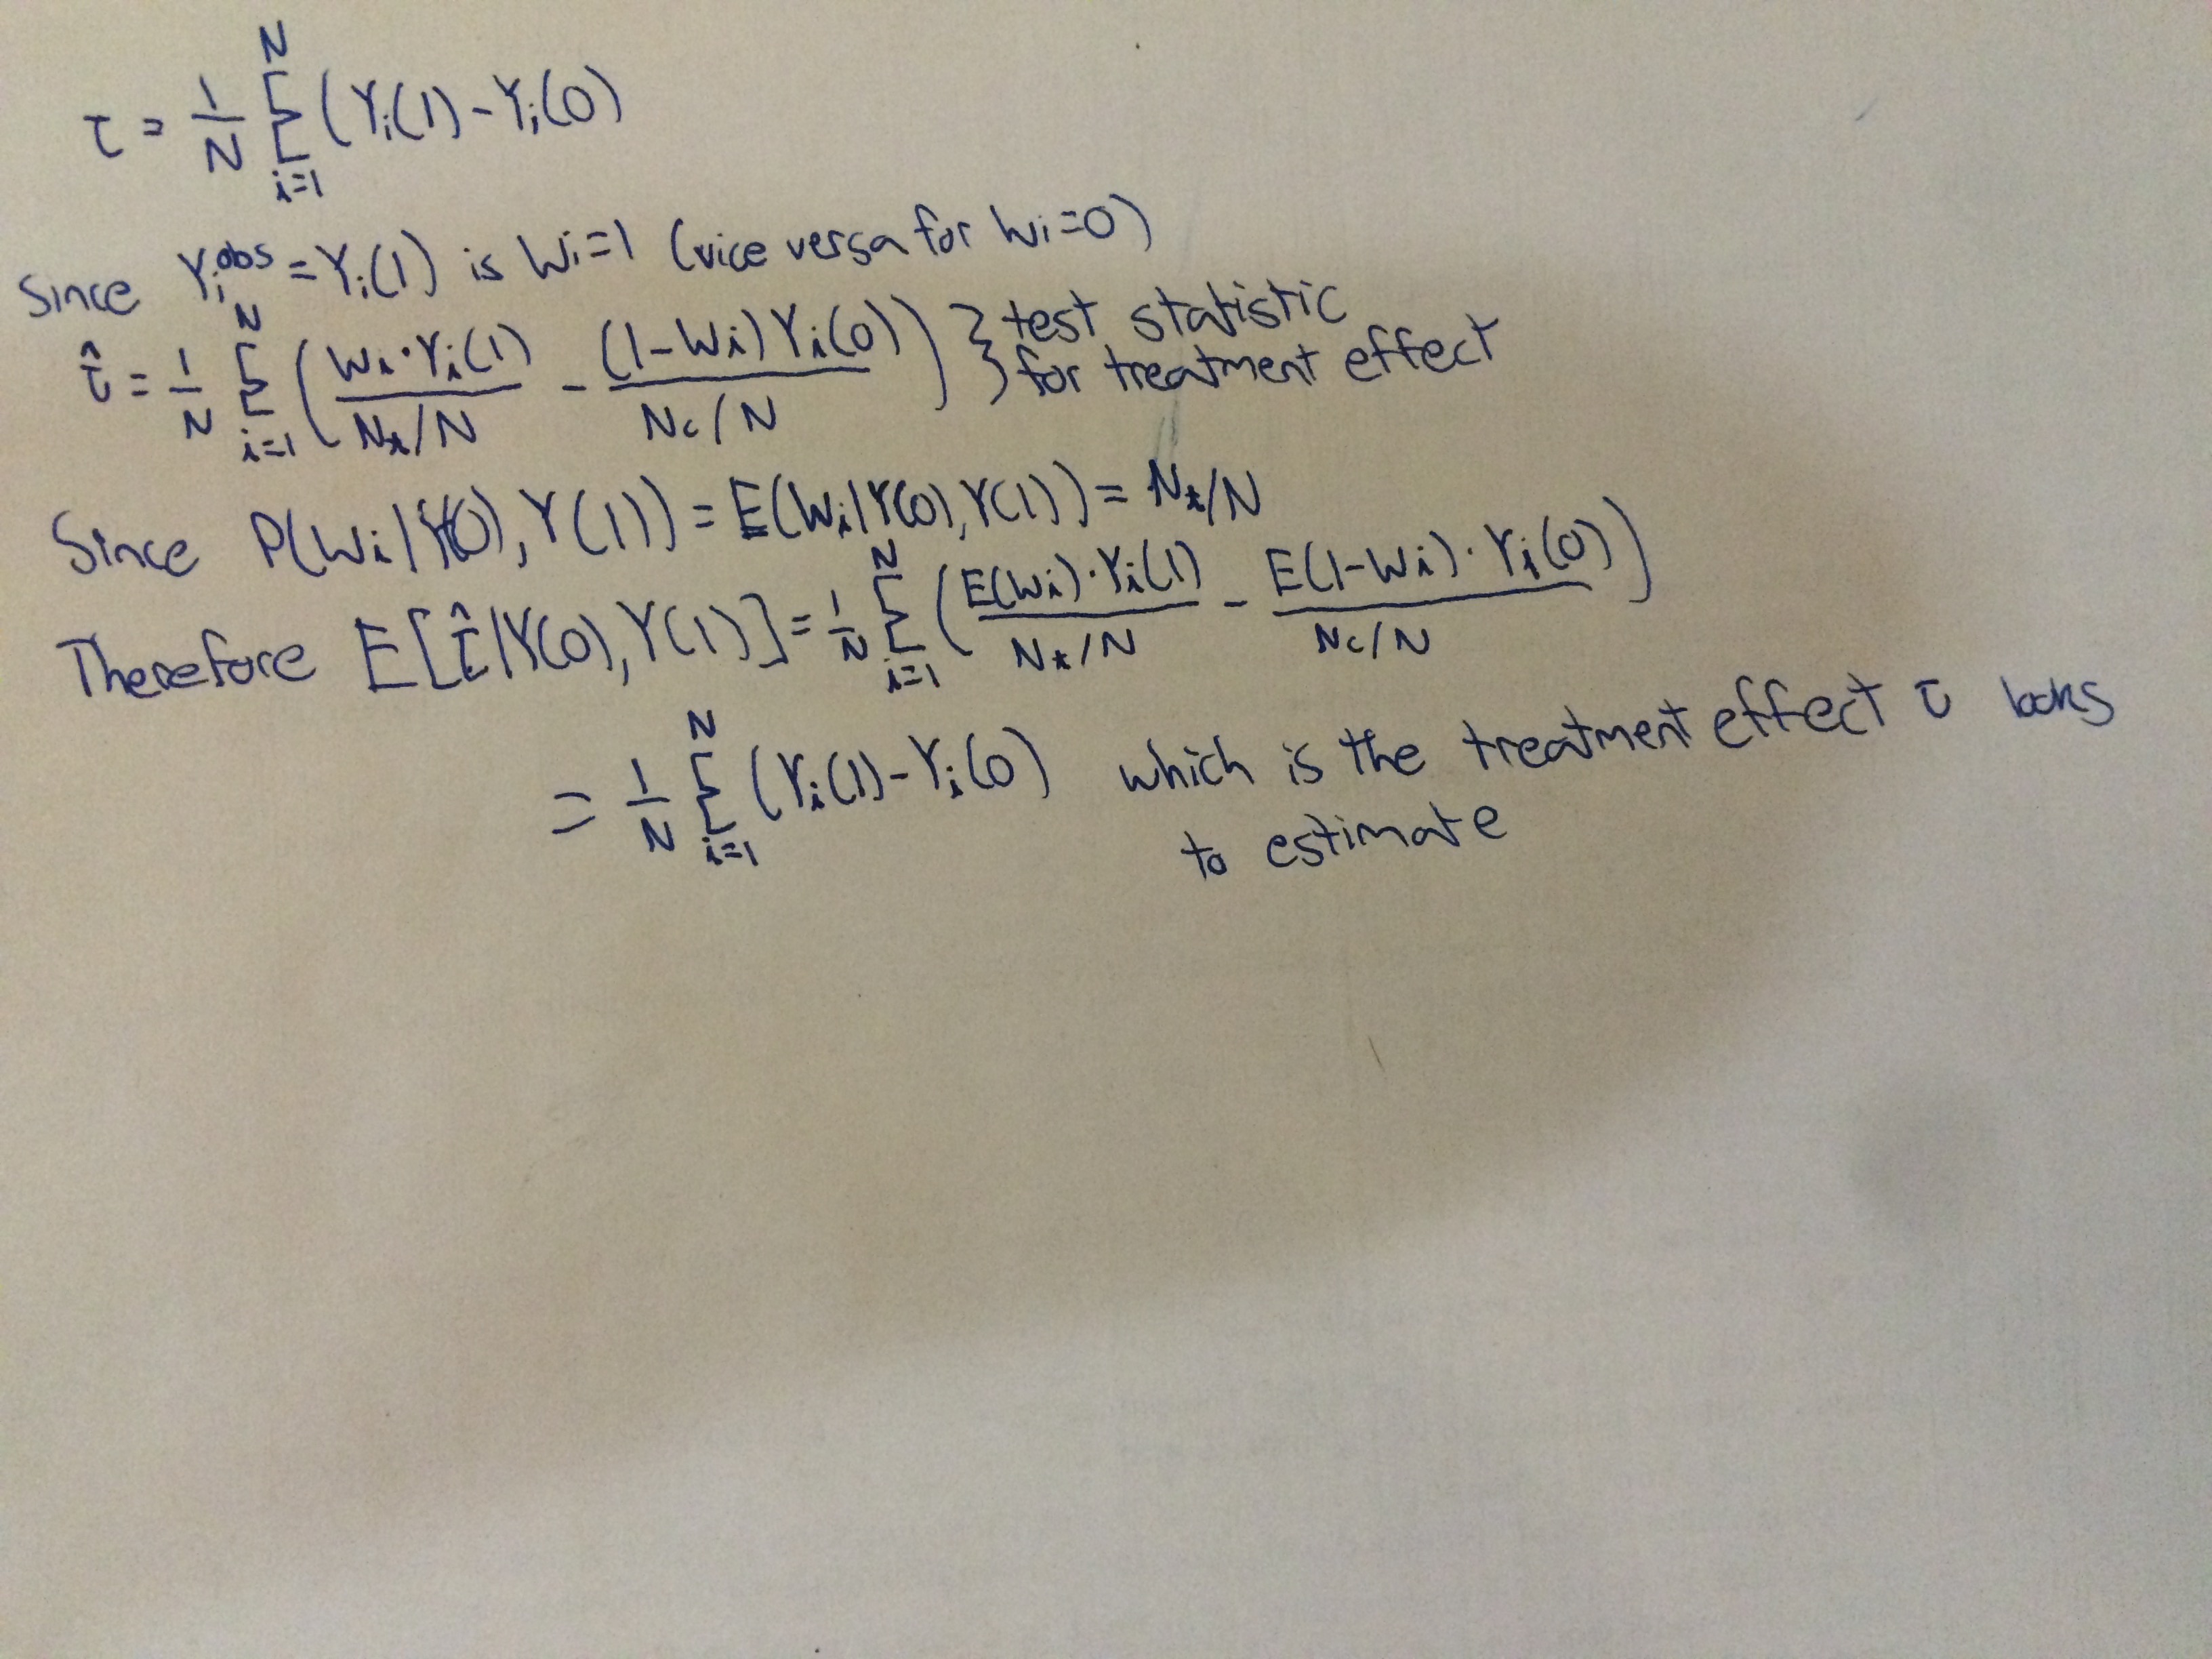 τ = 1/N Σ_{i=1}^{N} (Yi(1) - Yi(0)
Since Yi^obs = Yi(1) is Wi=1 (vice versa for Wi=0)
τ̂ = 1/N Σ_{i=1}^{N} ( Wi·Yi(1) / (Nt/N) - (1-Wi)Yi(0) / (Nc/N) ) } test statistic
} for treatment effect
Since P(Wi|Y(0),Y(1)) = E(Wi|Y(0),Y(1)) = Nt/N
Therefore E[τ̂|Y(0),Y(1)] = 1/N Σ_{i=1}^{N} ( E(Wi)·Yi(1) / (Nt/N) - E(1-Wi)·Yi(0) / (Nc/N) )
= 1/N Σ_{i=1}^{N} (Yi(1) - Yi(0) which is the treatment effect τ looks
to estimate